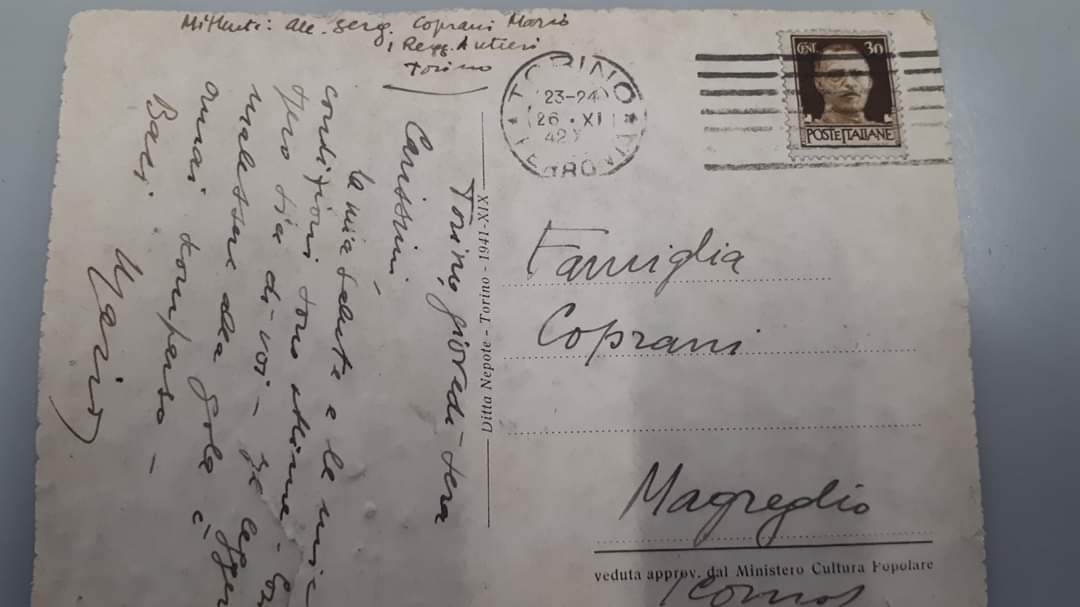 Mittente: All. Serg. Coprani Mario
1 Regg. Autieri
Torino
TORINO
23-24
26 • XI
42
CENT 30
POSTE ITALIANE
Torino, giovedì-sera
Carissimi,
la mia salute e le mie
condizioni sono ottime. Co
spero sia di voi - Il legger
malessere alla gola è
ormai scomparso -
Baci.
Mario
Ditta Nepote - Torino - 1941-XIX
Famiglia
Coprani
Magreglio
veduta approv. dal Ministero Cultura Popolare
(Como)